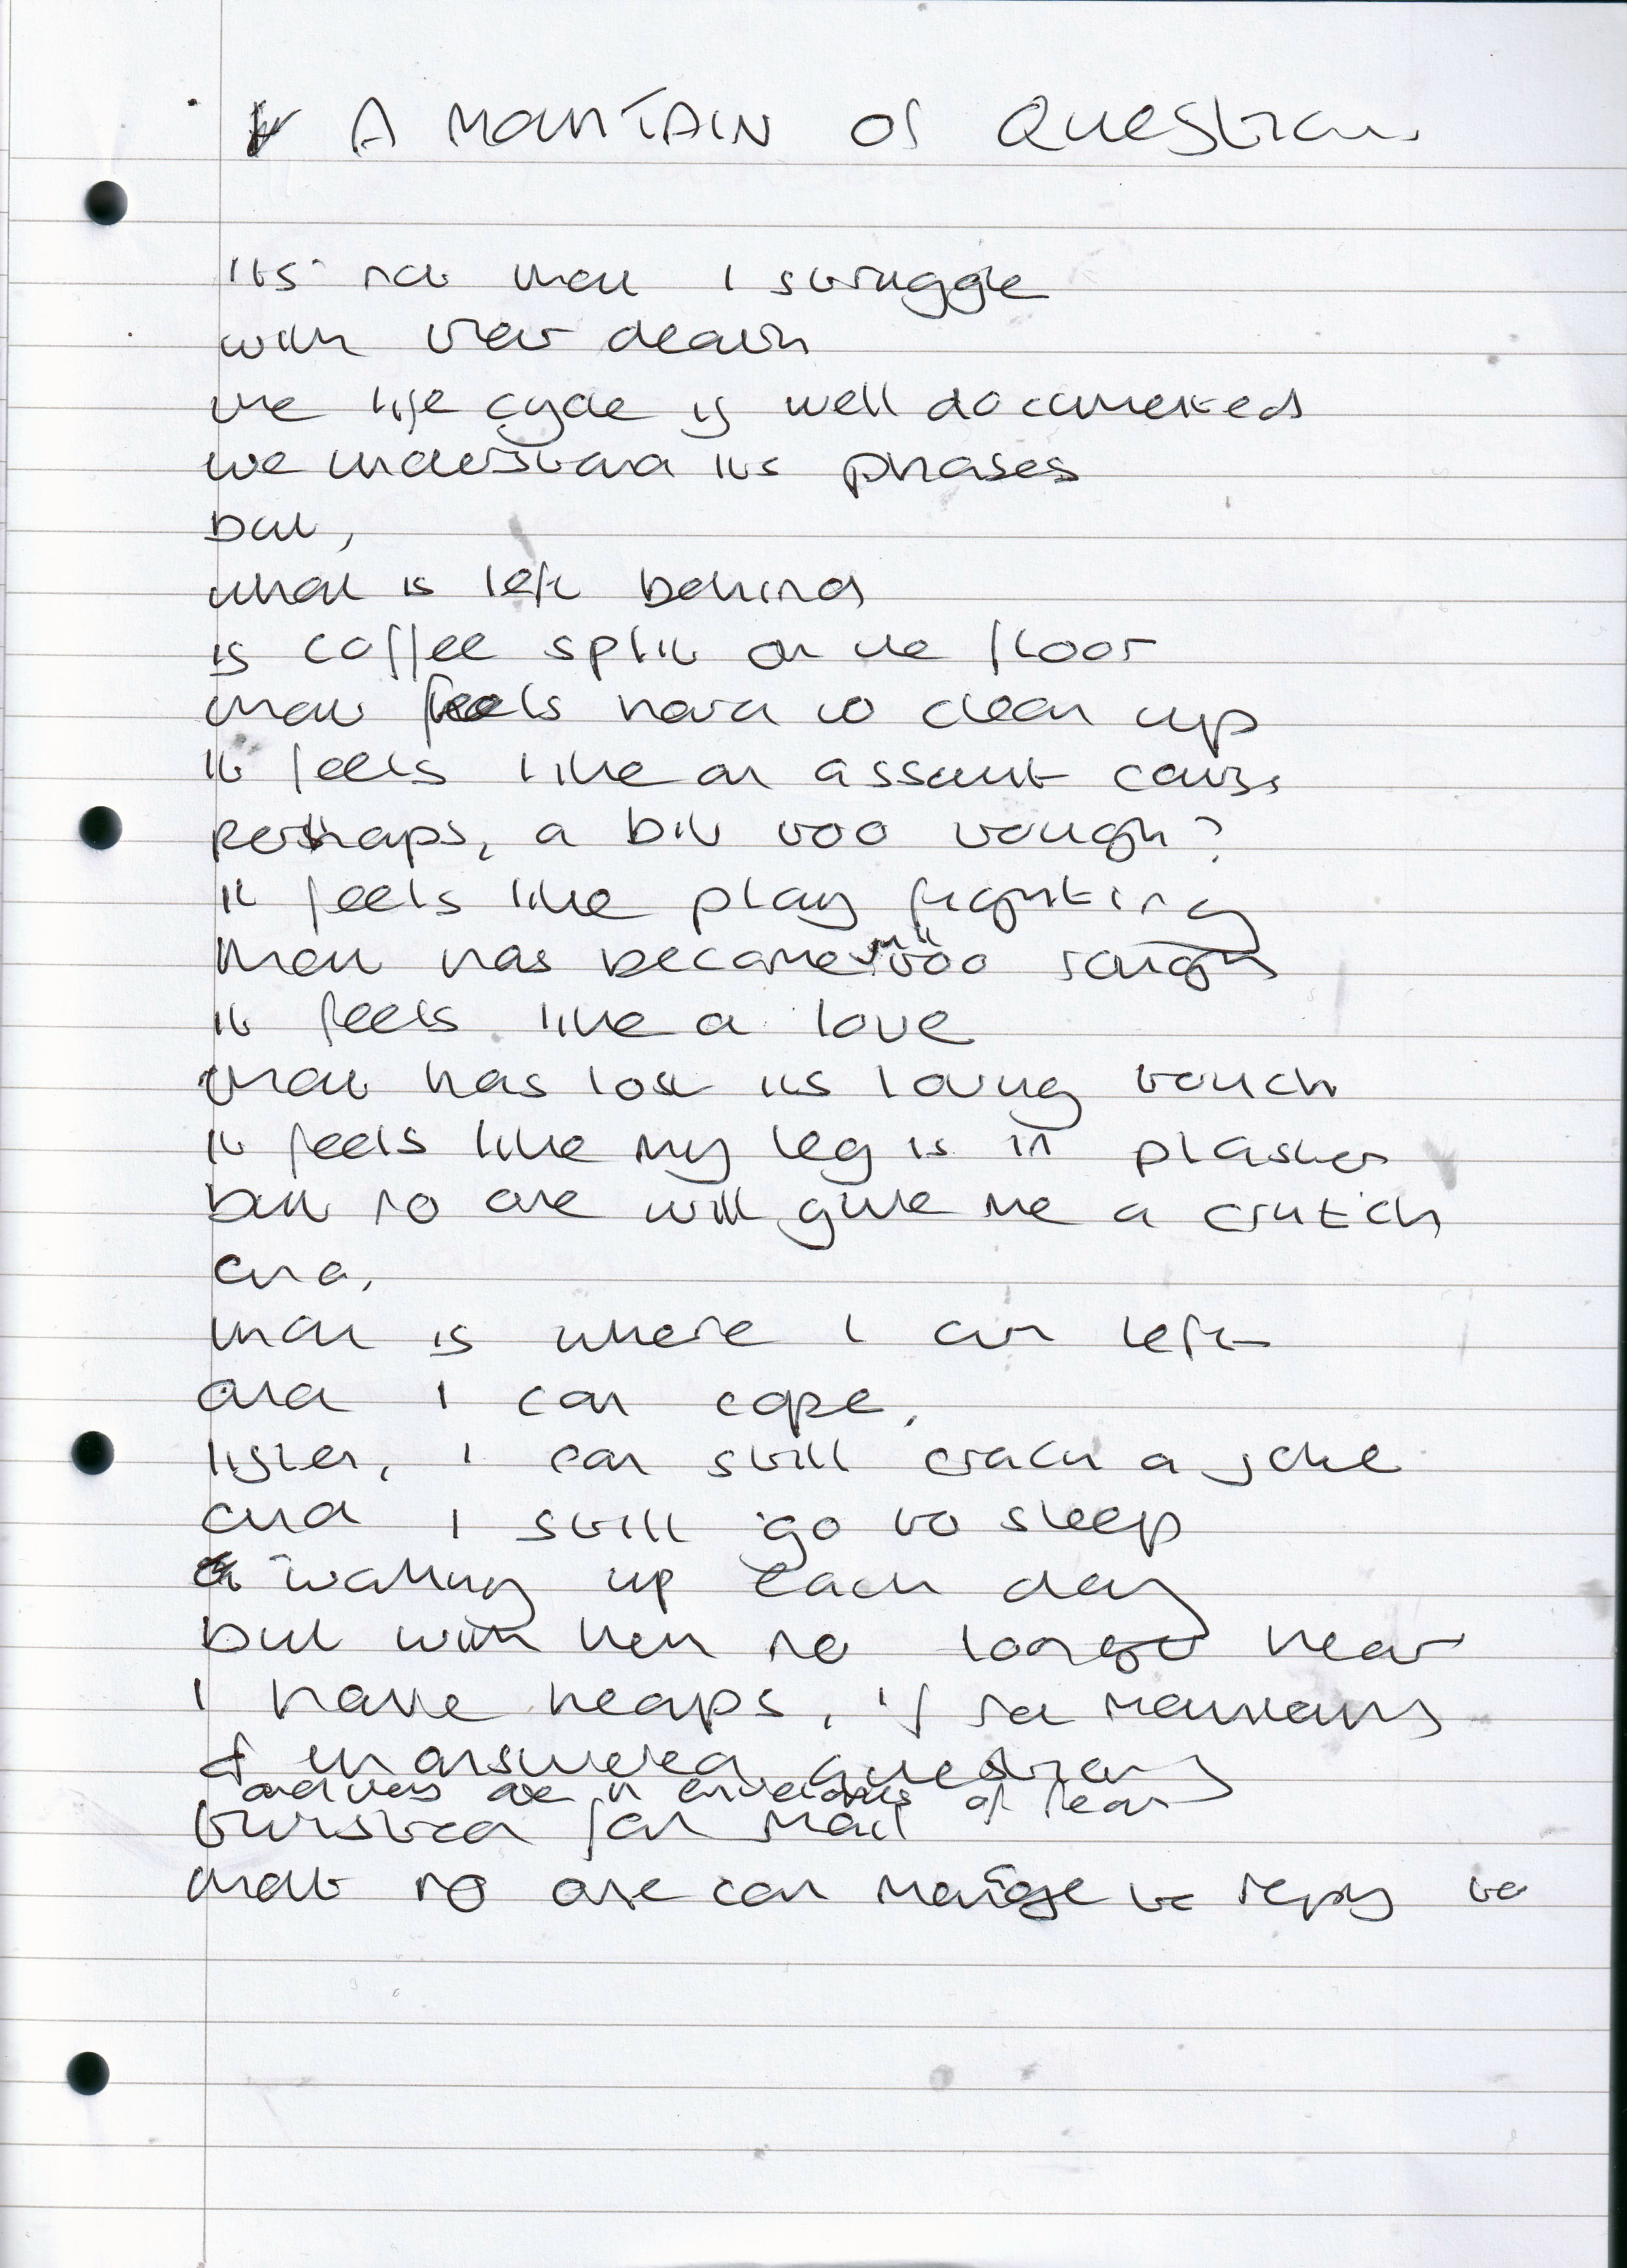 A MOUNTAIN of Questions
its not that I struggle
with their death
the life cycle is well documented
we understand its phases
but,
what is left behind
is coffee split on the floor
that feels hard to clean up
it feels like an assault course
perhaps, a bit too tough?
it feels like play fighting
that has become too rough
it feels like a love
that has lost its loving touch
it feels like my leg is in plaster
but no one will give me a crutch
and,
that is where I am left
and I can cope,
listen, I can still crack a joke
and I still go to sleep
waking up each day
but with them no longer near
I have heaps, if not mountains
of unanswered questions
and they are in envelopes of fear
for mail
that no one can manage to reply to